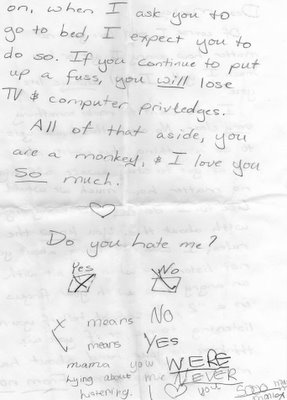 on, when I ask you to
go to bed, I expect you to
do so. If you continue to put
up a fuss, you will lose
TV & computer priviledges.
All of that aside, you
are a monkey, & I love you
So much.
Do you hate me?
Yes No
x means No
means Yes
mama yow WERE
Lying about me NEVER
I you